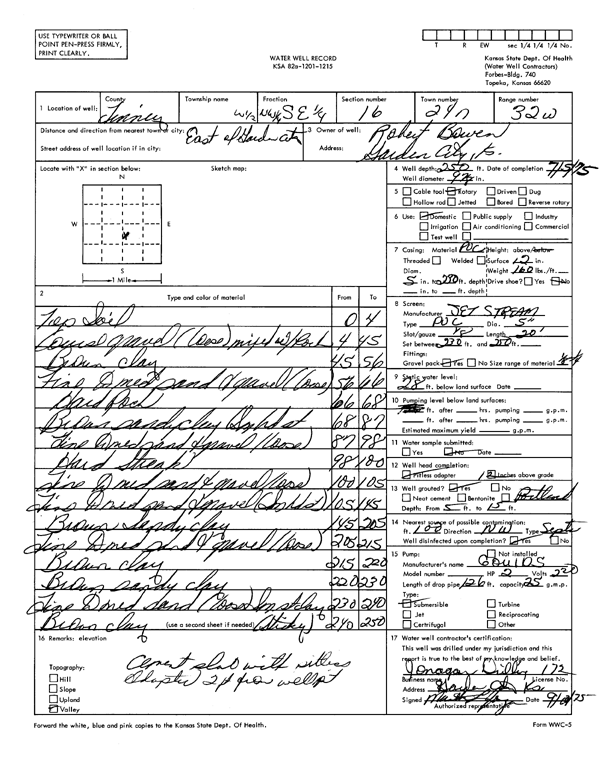 USE TYPEWRITER OR BALL
POINT PEN-PRESS FIRMLY,
PRINT CLEARLY.
T R EW sec 1/4 1/4 1/4 No.
WATER WELL RECORD
KSA 82a-1201-1215
Kansas State Dept. Of Health
(Water Well Contractors)
Forbes-Bldg. 740
Topeka, Kansas 66620
1 Location of well: County Finney Township name Fraction W1/2 NW1/4 SE 1/4 Section number 16 Town number 24 Range number 32w
Distance and direction from nearest town or city: East of Garden City
Street address of well location if in city:
3 Owner of well: Robert Bowen
Address: Garden City, Ks.
Locate with "X" in section below: Sketch map:
N
W E
S
1 Mile
4 Well depth: 250 ft. Date of completion 7/5/75
Well diameter in.
5 Cable tool Rotary Driven Dug
Hollow rod Jetted Bored Reverse rotary
6 Use: Domestic Public supply Industry
Irrigation Air conditioning Commercial
Test well
7 Casing: Material PVC Height: above/below
Threaded Welded Surface 12 in.
Diam. Weight 160 lbs./ft.
5 in. to 250 ft. depth Drive shoe? Yes No
in. to ft. depth
2 Type and color of material From To
Top Soil 0 4
Course gravel (loose) mixed w/ Rock 4 45
Brown clay 45 56
Fine D med sand & gravel (loose) 56 66
Hard Rock 66 68
Brown sandy clay 68 87
Fine D med sand & gravel (loose) 87 98
Hard Streak 98 100
Fine D med sand & gravel loose 100 105
Fine D med sand & gravel 105 145
Brown sandy clay 145 205
Fine D med sand & gravel (loose) 205 215
Brown clay 215 220
Brown sandy clay 220 230
Fine D med sand (loose) 230 240
Brown clay (use a second sheet if needed) (sticky) 240 250
8 Screen:
Manufacturer JET STREAM
Type PVC Dia. 5"
Slot/gauze 1/8 Length 20'
Set between 230 ft. and 250 ft.
Fittings:
Gravel pack Yes No Size range of material
9 Static water level:
28 ft. below land surface Date
10 Pumping level below land surfaces:
ft. after hrs. pumping g.p.m.
ft. after hrs. pumping g.p.m.
Estimated maximum yield g.p.m.
11 Water sample submitted:
Yes No Date
12 Well head completion:
Pitless adapter 12 Inches above grade
13 Well grouted? Yes No
Neat cement Bentonite Portland
Depth: From 5 ft. to 15 ft.
14 Nearest source of possible contamination:
ft. 100 Direction NW Type Septic
Well disinfected upon completion? Yes No
15 Pump: Not installed
Manufacturer's name GOULDS
Model number HP 2 Volts 220
Length of drop pipe 126 ft. capacity 25 g.p.m.
Type:
Submersible Turbine
Jet Reciprocating
Centrifugal Other
16 Remarks: elevation
Cement slab with pitless
adapter 24 from well pit
Topography:
Hill
Slope
Upland
Valley
17 Water well contractor's certification:
This well was drilled under my jurisdiction and this
report is true to the best of my knowledge and belief.
172
Business name License No.
Address Ks
Signed Date
Authorized representative
Forward the white, blue and pink copies to the Kansas State Dept. Of Health.
Form WWC-5